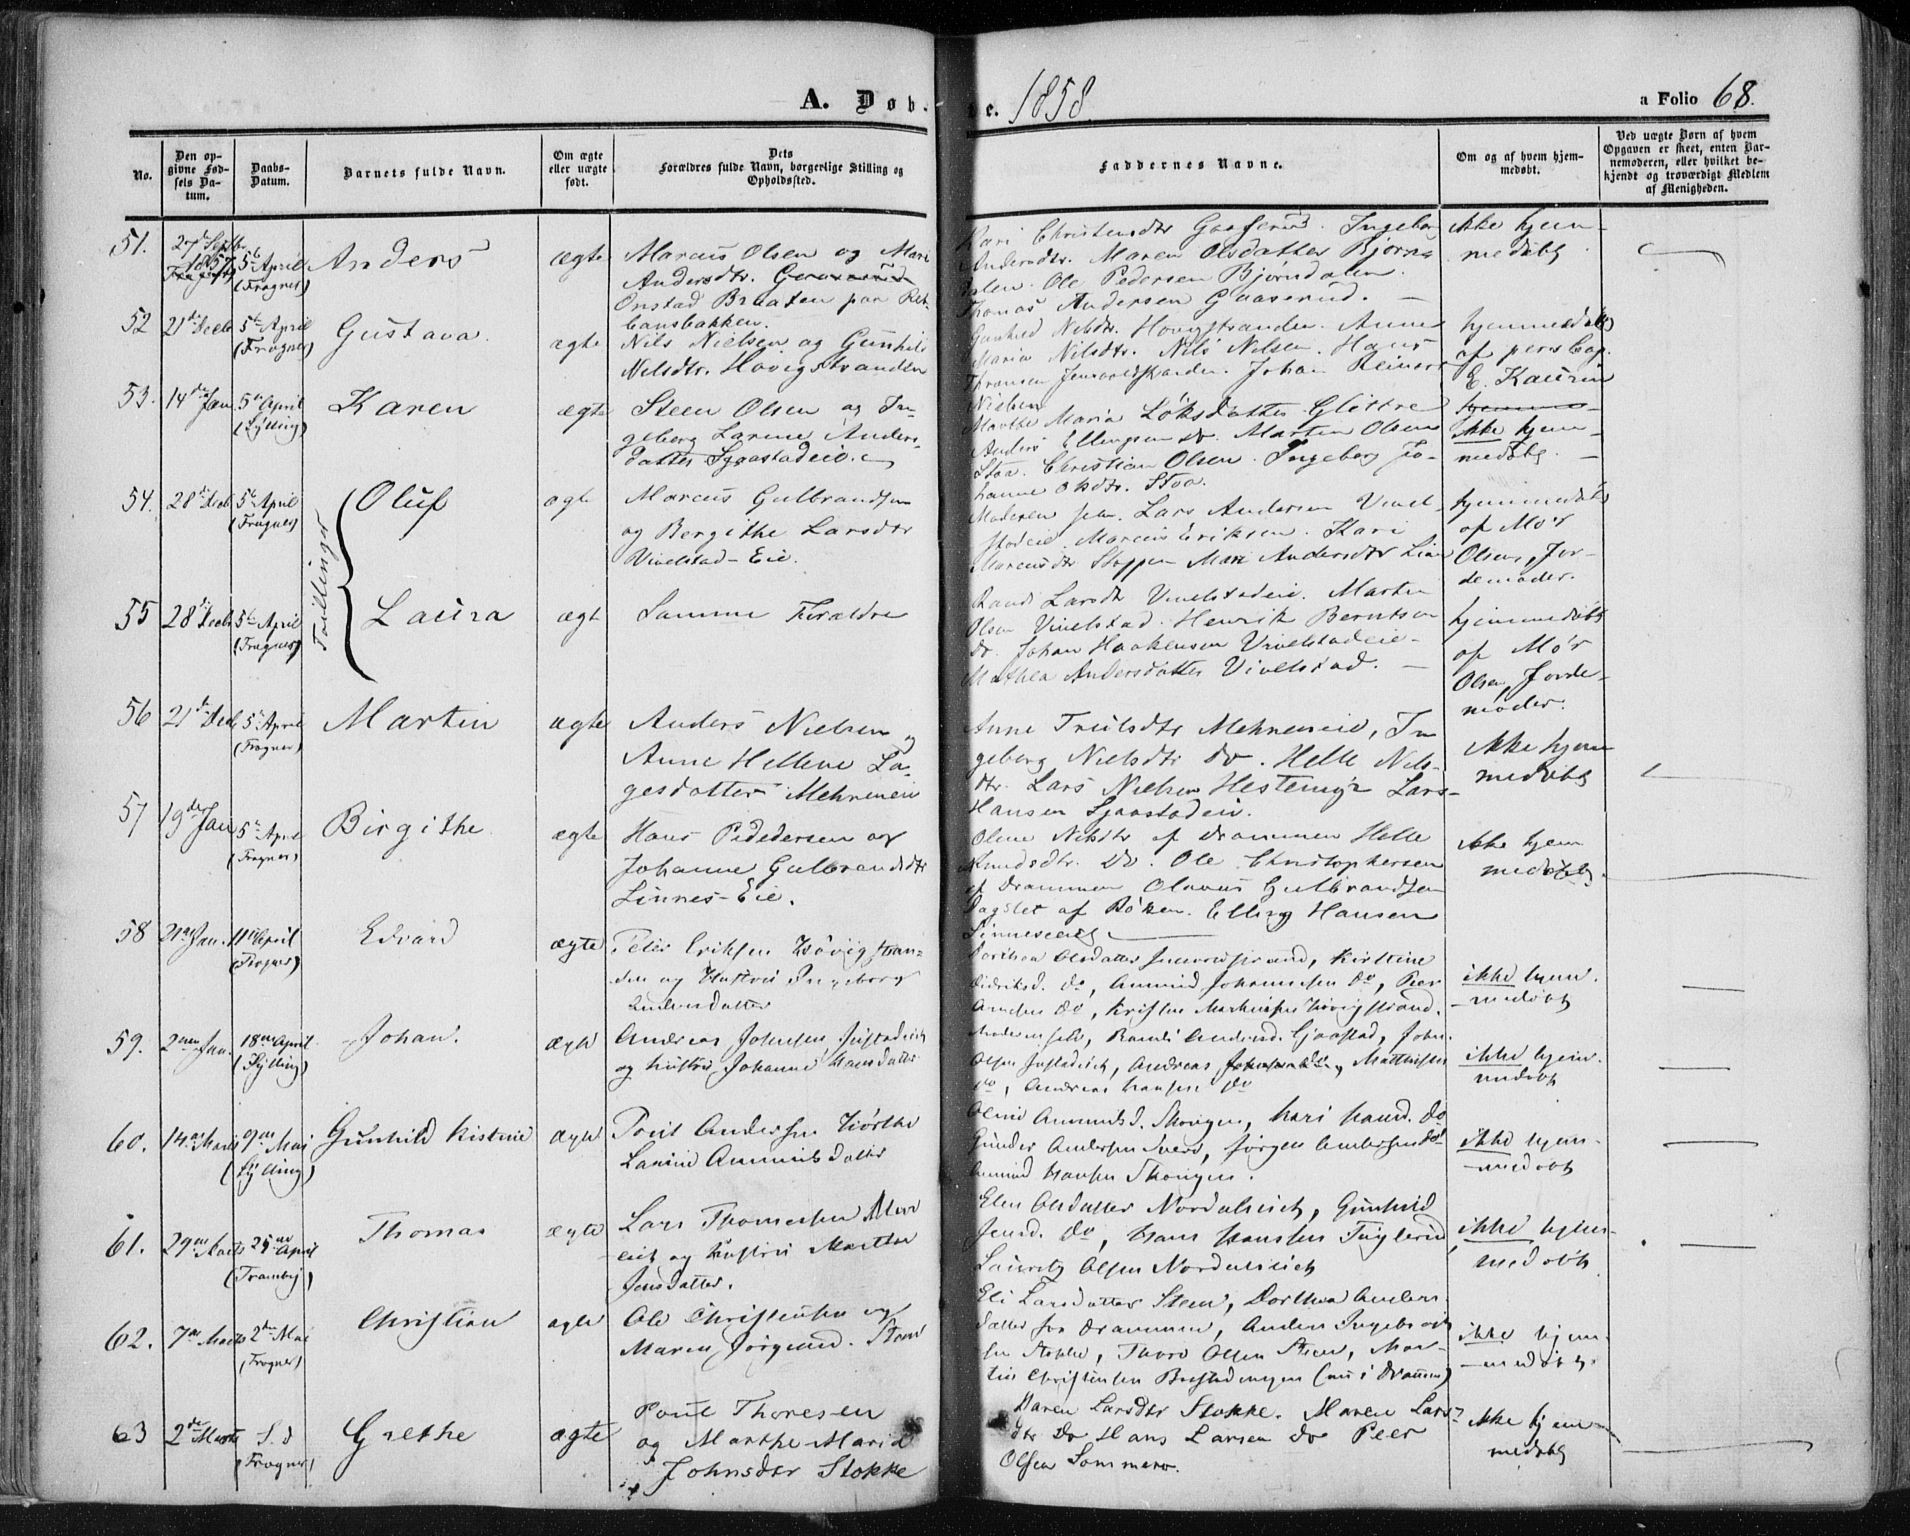 A. Døb-
te. 1858.
a Folio 68.
No.
Den op-
givne Fød-
sels Da-
tum.
Daabs-
Datum.
Barnets fulde Navn.
Om ægte
eller uægte
født.
Dets
Forældres fulde Navn, borgerlige Stilling og
Opholdssted.
Faddernes Navne.
Om og af hvem hjem-
medøbt.
Ved uægte Børn af hvem
Opgaven er skeet, enten Bar-
nemoderen, eller hvilket be-
kjendt og troværdigt Medlem
af Menigheden.
51.
27de Septb.
1857
5te April
(Frogner)
Anders
ægte
Marcus Olsen og Mari
Andersdtr.
Onstad Braaten paa
bansbakken.
Kari Christensdtr Gaaserud. Ingeborg
Andersdtr. Maren Olsdatter Bjørn-
dalen. Ole Pedersen Bjørndalen.
Thomas Andersen Gaaserud. —
ikke hjem-
medøbt
52
21de Decb
5te April
(Frogner)
Gustava.
ægte
Nils Nielsen og Gunhild
Nilsdtr. Hovigstranden
Gunhild Nilsdtr. Hovigstranden. Anne
Maria Nilsdtr. Nils Nilsen. Hans
Johan Reinert
Nielsen
hjemmedøbt
af pers Cap.
E. Kaurin
53.
14de Jan
5te April
(Sylling)
Karen
ægte
Steen Olsen og In-
geborg Larine Anders-
datter Sjaastadeie.
Marthe Maria Gløttre
Anders Ellingsen do. Morten Olsen
Stoa. Christian Olsen. Ingeborg Jo-
hanne Olsdtr. Stoa.
ikke hjem-
medøbt. —
54.
28de Decb
5te April
(Frogner)
Tvillinger
Oluf
ægte
Marcus Gulbrandsen
og Bergithe Larsdtr
Vivelstad-Eie.
Moderen selv. Lars Andersen Vivel-
stadeie. Marcus Eriksen. Kari
Marcusdtr Stoppen Mari Andersdtr Lian
hjemmedøbt
af Mor
Olsen, Jor-
demoder.
55
28de Decb
5te April
(Frogner)
Laura
ægte
Samme Forældre
Randi Larsdtr Vivelstadeie. Martin
Olsen Vivelstad. Henrik Berntsen
do. Johan Haakensen Vivelstadeie.
Mathea Andersdatter Vivelstad. —
hjemmedøbt
af Mor
Olsen, Jorde-
moder.
56
21de Decb
5te April
(Frogner)
Martin
ægte
Anders Nielsen og
Anne Hellene La-
gesdatter Mehreneie
Anne Trulsdtr Mehreneie, In
geborg Nielsdtr do. Helle Nils-
dtr. Lars Nielsen Hestemyr Lars
Hansen Sjaastadeie.
ikke hjem
medøbt
57
19de Jan
5te April
(Frogner)
Birgithe
ægte
Hans Pedersen og
Johanne Gulbrandsdtr
Linnes-Eie.
Oline Nilsdtr af Drammen Helle
Knudsdtr. do. Ole Christophersen
af Drammen Olavus Gulbrandsen
Dagslet af Røken. Elling Hansen
Linneseie
ikke hjem
medøbt.
58
21de Jan.
11te April
(Frogner)
Edvard
ægte
Peder Eriksen Høvigstran-
den og Hustru Ingeborg
Andersdatter
Dorthea Olsdatter Kirstine
Eidriksd. do, Amund Johannesen do, Peer
Amdsen do, Kristen Høvigstrand.
ikke hjem.
medøbt
59.
2den Jan.
18de April
(Sylling)
Johan.
ægte
Andreas Johnsen
og hustru Johanne Hansdatter
Moderen selv, Randi Andersd. Gjaastad, John
Olsen Andreas do, Mathisen
do, Andreas Hansen do
ikke hjem.
medøbt
60.
14de Marts
9de Mai
(Sylling)
Gunhild Kistine
ægte
Poul Andersen Hørthe
Larine Amundsdatter
Oline Amundsd. Skougen, Kari Hansd. do
Gunder Andersen Jørgen Andersen do
Amund Hansen Skougen.
ikke hjem-
medøbt
61.
29de Marts
25de April
(Tranby)
Thomas
ægte
Lars Thomessen
eie og hustru Marthe
Jensdatter.
Elen Olsdatter Gunhild
Jensd. do, Hans Hansen
Lauritz Olsen
ikke hjem-
medøbt
62.
7de Marts
2den Mai
(Frogner)
Christian
ægte
Ole Christensen og
Maren Jørgensd. Steen
Eli Larsdatter Steen, Dorthea Anders-
datter fra Drammen, Anders Ingebret-
sen Stokke, Thord Olsen Steen, Mar-
tin Christensen (nu i Drammen)
ikke hjem-
medøbt.
63
2de Marts
S. d
(Frogner)
Grethe
ægte
Poul Thoresen
og Marthe Maria
Johnsdtr Stokke
Karen Larsdtr Stokke. Maren Lars-
dtr do Hans Larsen do Peer
Olsen Sommero.
ikke hjem-
medøbt